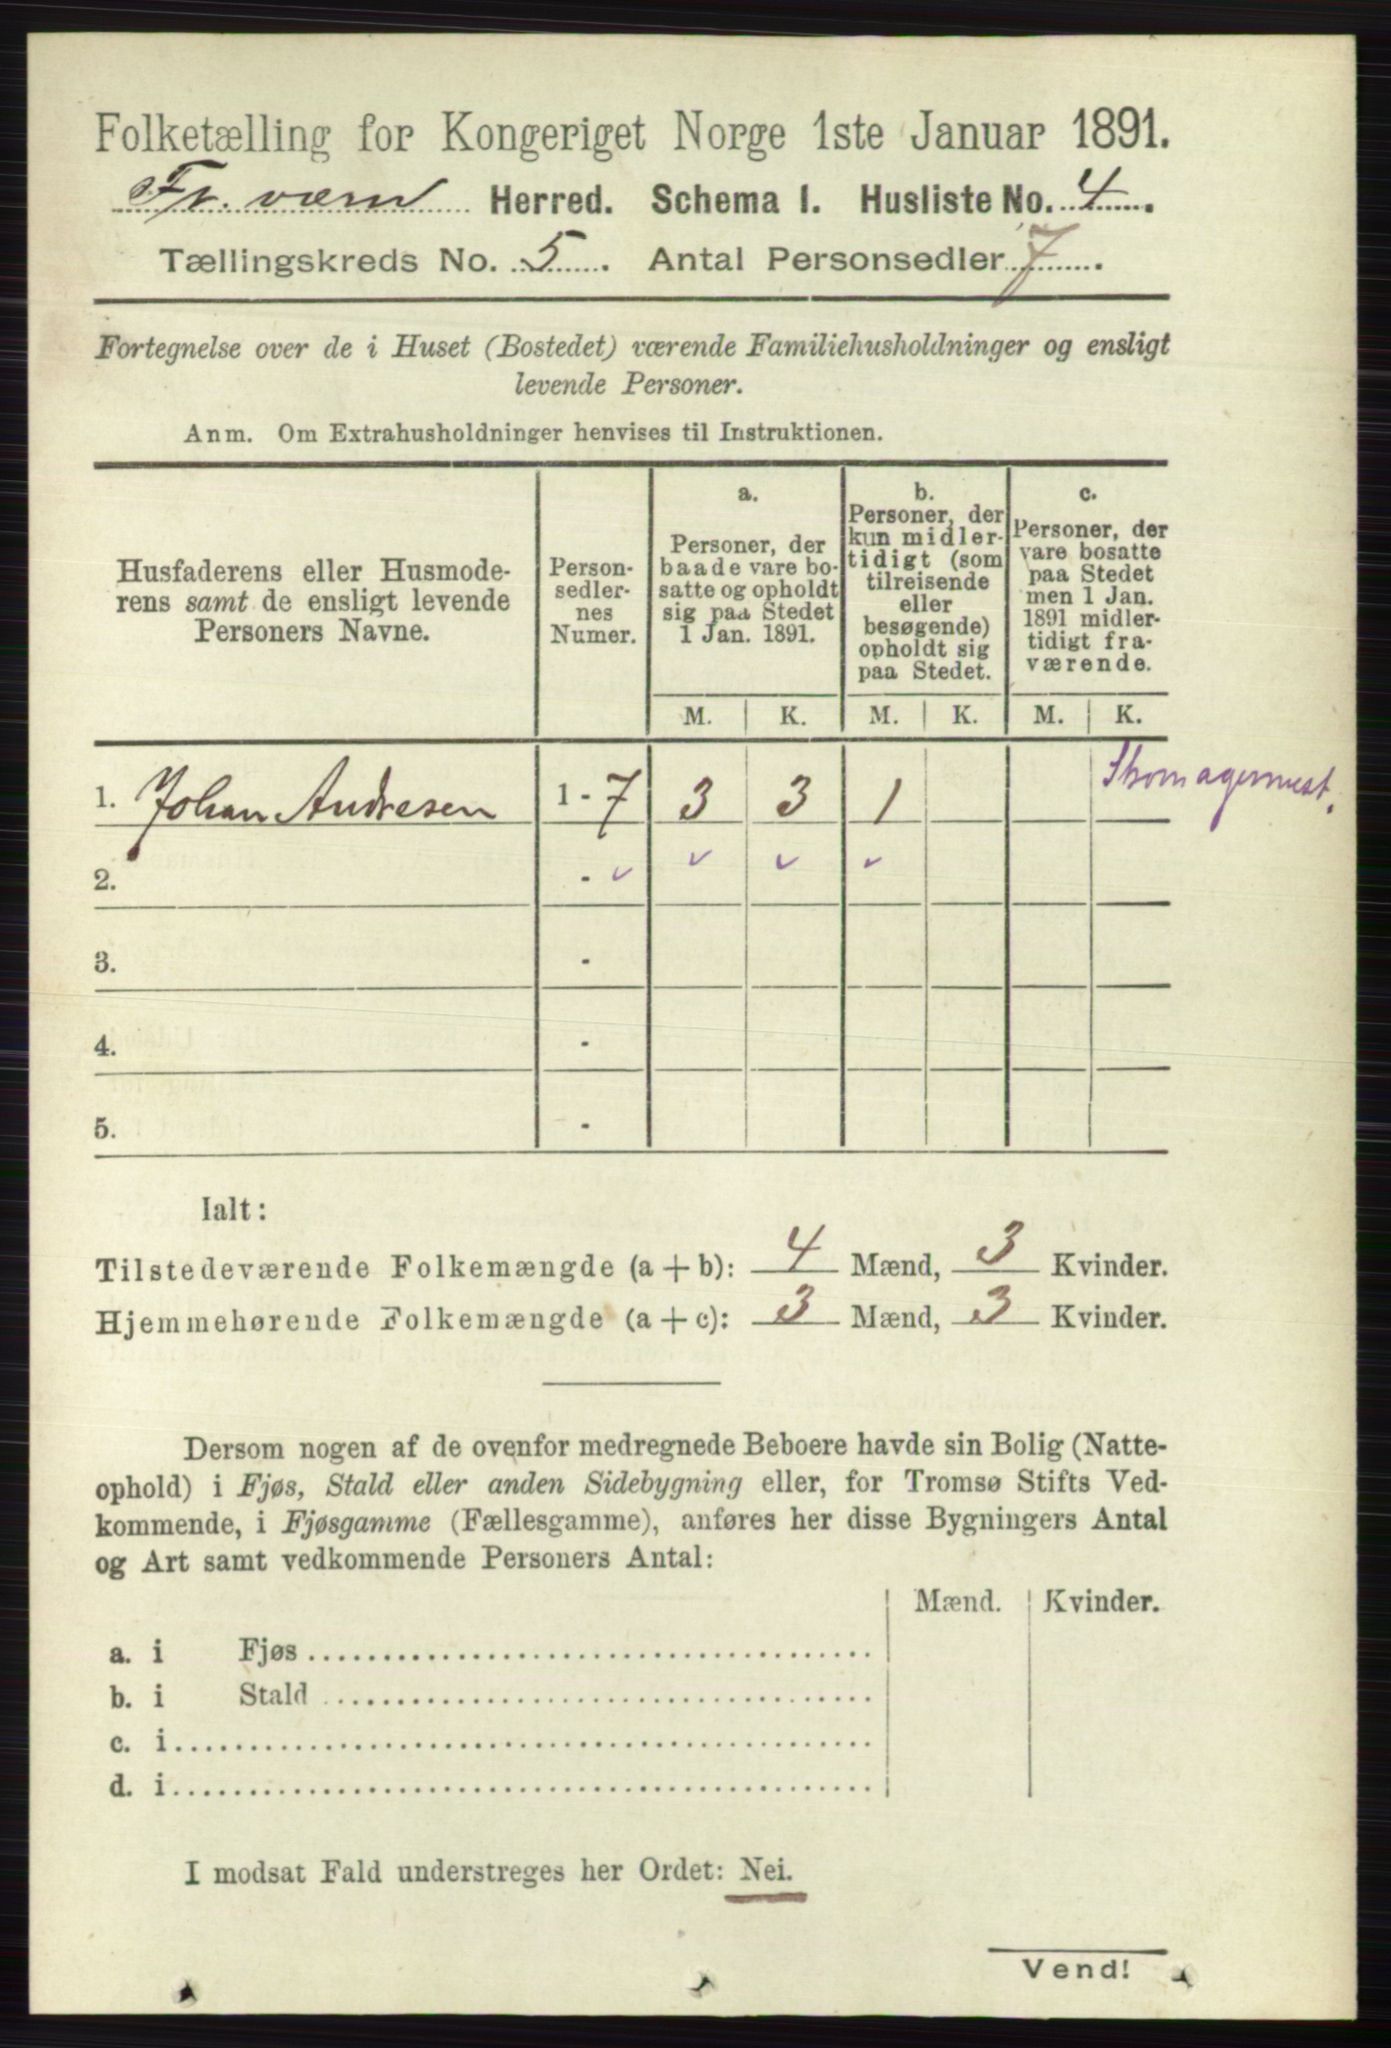 Folketælling for Kongeriget Norge 1ste Januar 1891.
Fr. værn Herred. Schema I. Husliste No. 4.
Tællingskreds No. 5. Antal Personsedler 7.
Fortegnelse over de i Huset (Bostedet) værende Familiehusholdninger og ensligt
levende Personer.
Anm. Om Extrahusholdninger henvises til Instruktionen.
Husfaderens eller Husmode-
rens samt de ensligt levende
Personers Navne.
Person-
sedler-
nes
Numer.
a.
Personer, der
baade vare bo-
satte og opholdt
sig paa Stedet
1 Jan. 1891.
b.
Personer, der
kun midler-
tidigt (som
tilreisende
eller
besøgende)
opholdt sig
paa Stedet.
c.
Personer, der
vare bosatte
paa Stedet
men 1 Jan.
1891 midler-
tidigt fra-
værende.
M. K. M. K. M. K.
1. Johan Andresen 1 - 7 3 3 1 Skomagermest.
2. - ✓ ✓ ✓ ✓
3. -
4. -
5. -
Ialt:
Tilstedeværende Folkemængde (a + b): 4 Mænd, 3 Kvinder.
Hjemmehørende Folkemængde (a + c): 3 Mænd, 3 Kvinder.
Dersom nogen af de ovenfor medregnede Beboere havde sin Bolig (Natte-
ophold) i Fjøs, Stald eller anden Sidebygning eller, for Tromsø Stifts Ved-
kommende, i Fjøsgamme (Fællesgamme), anføres her disse Bygningers Antal
og Art samt vedkommende Personers Antal:
Mænd. Kvinder.
a. i Fjøs
b. i Stald
c. i
d. i
I modsat Fald understreges her Ordet: Nei.
Vend!